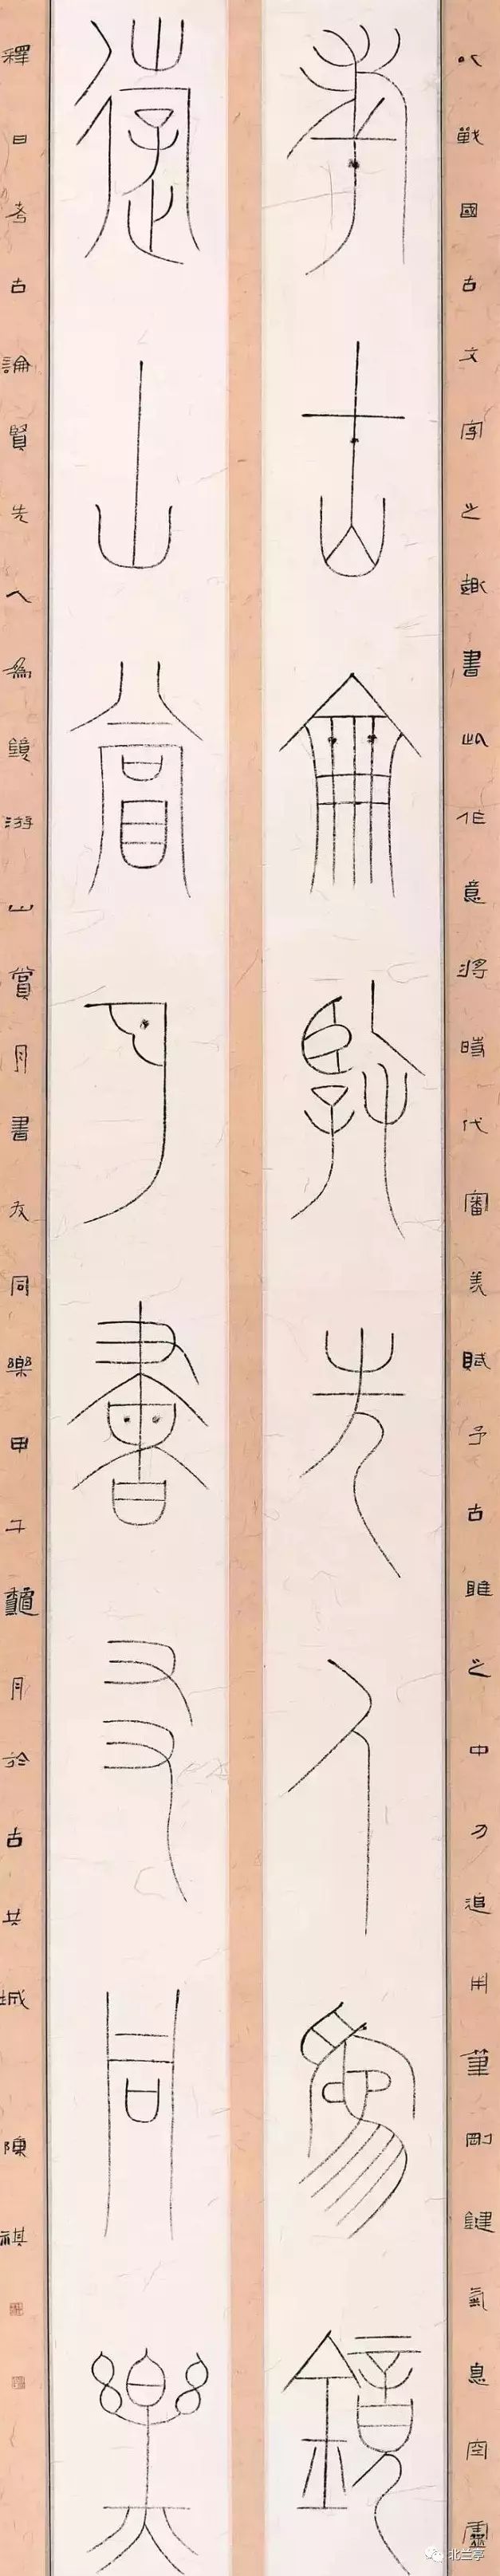 以戰國古文字之趣書此作意將時代審美賦予古雅之中力追用筆剛健氣息空靈
考古侖賢先人為鏡
遊山賞月書友同樂
釋曰考古論賢先人為鏡游山賞月書友同樂甲午龝月於古共城陳祺
北兰亭